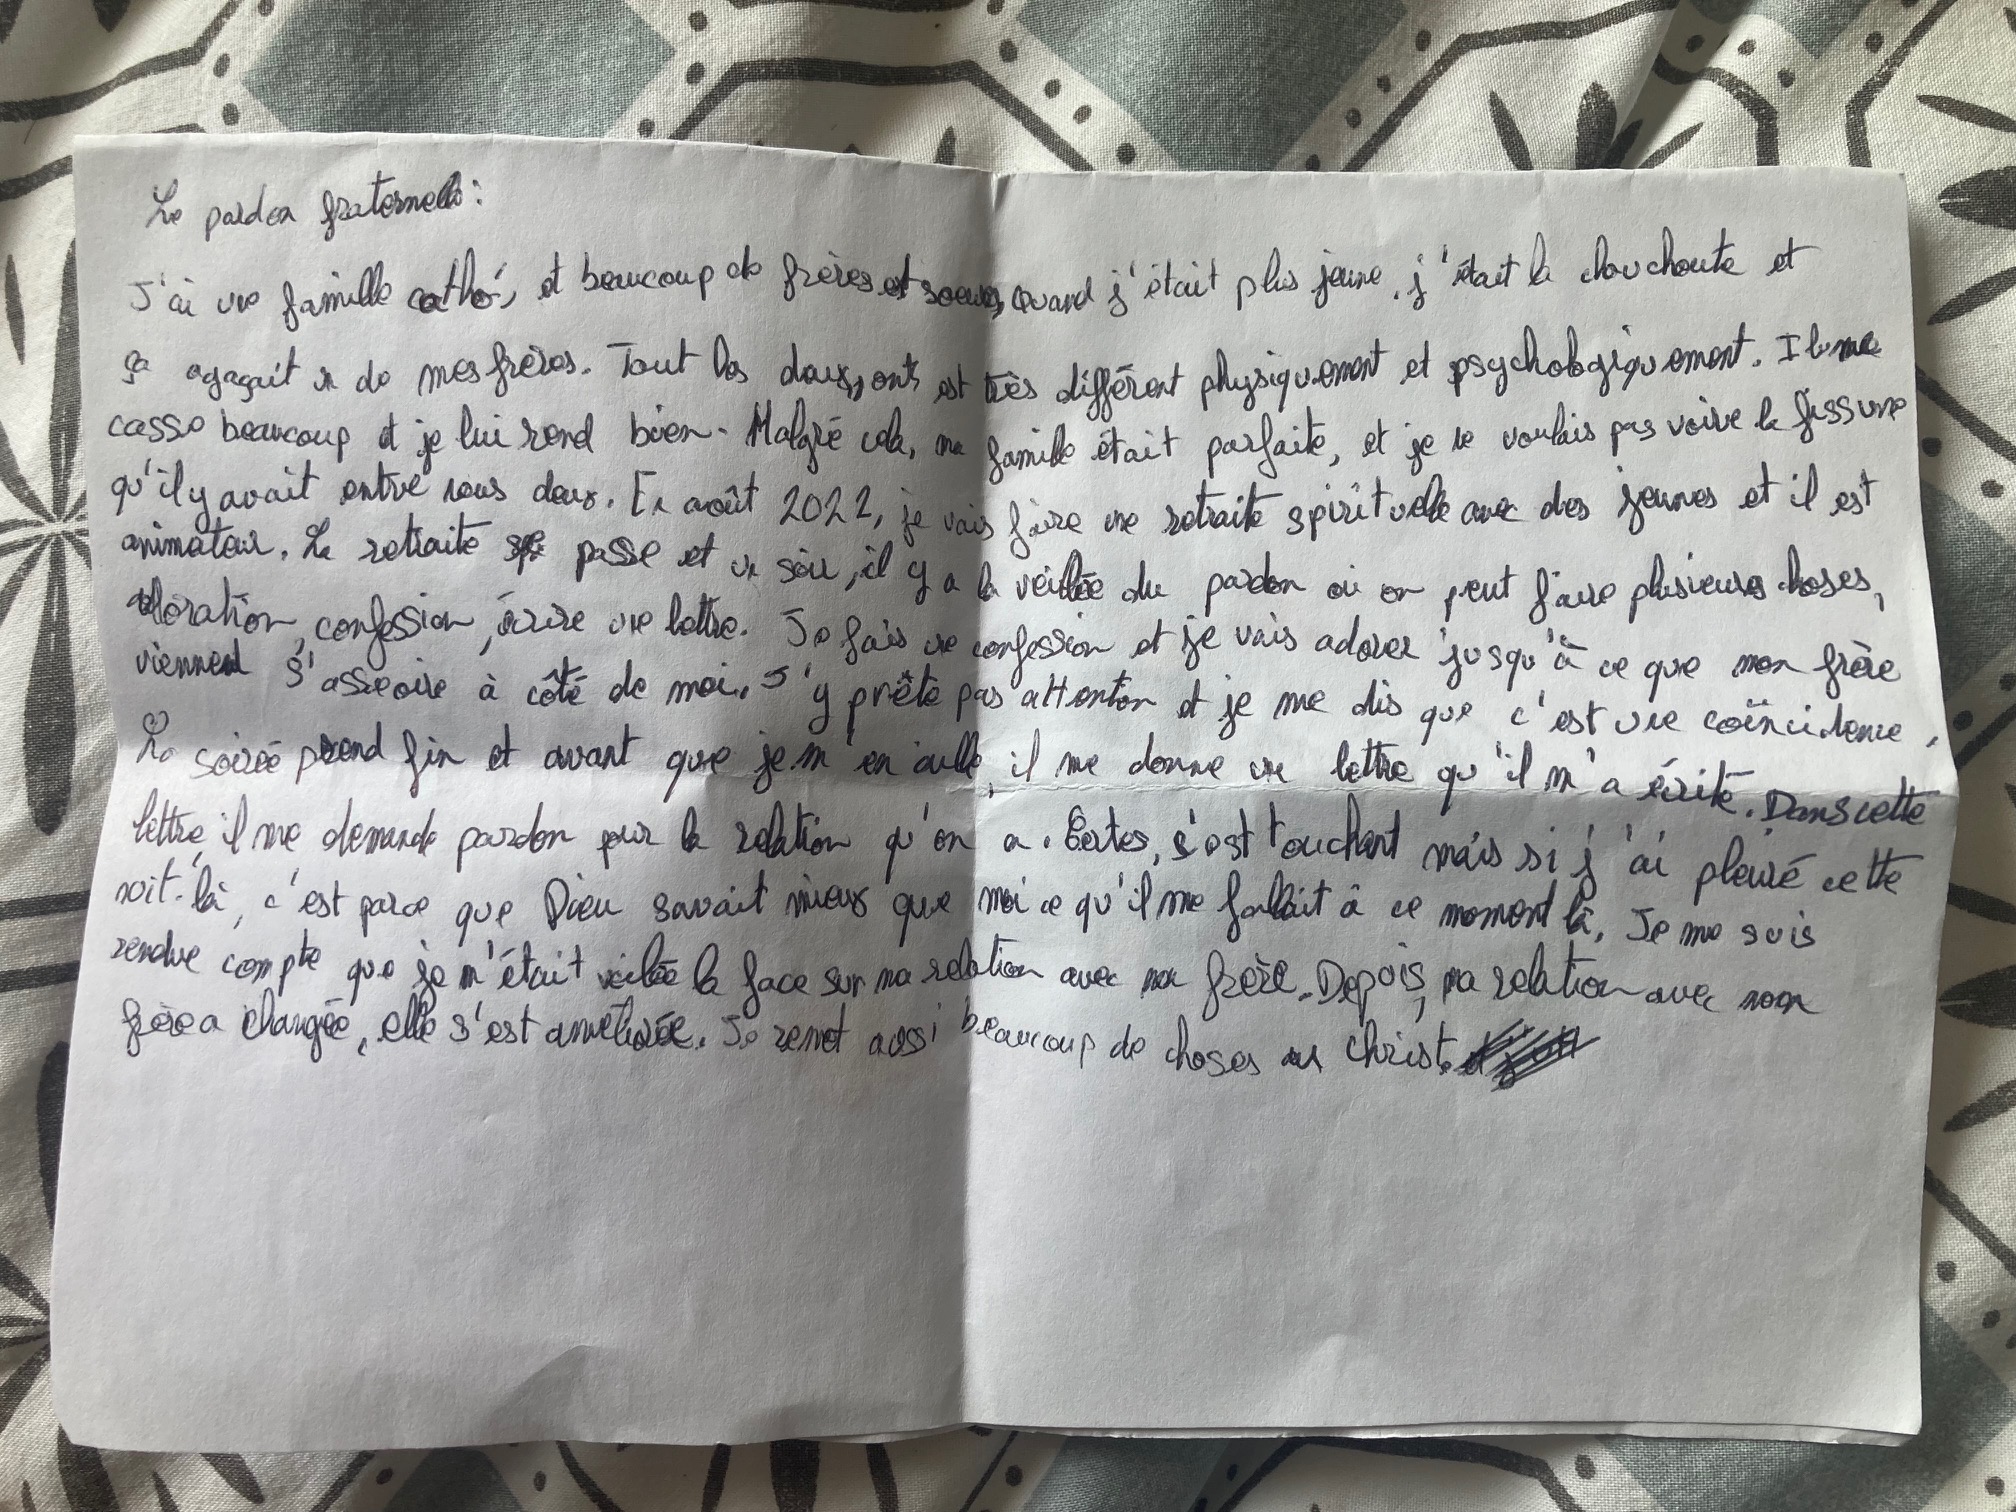 Le pardon fraternelle :
J'ai une famille catho, et beaucoup de frères et soeurs, Quand j'était plus jeune, j'était la chouchoute et
ça agaçait un de mes frères. Tout les deux, ont est très différent physiquement et psychologiquement. Il me
casse beaucoup et je lui rend bien. Malgré cela, ma famille était parfaite, et je ne voulais pas voire la fissure
qu'il y avait entre nous deux. En août 2022, je vais faire une retraite spirituelle avec des jeunes et il est
animateur. La retraite se passe et un soir, il y a la veillée du pardon où on peut faire plusieurs choses,
adoration, confession, écrire une lettre. Je fais une confession et je vais adorer jusqu'à ce que mon frère
viennent s'asseoire à côté de moi. J'y prête pas attention et je me dis que c'est une coïncidence.
La soirée prend fin et avant que je m'en aille, il me donne une lettre qu'il m'a écrite. Dans cette
lettre, il me demande pardon pour la relation qu'on a. Certes, s'est touchant mais si j'ai pleuré cette
soit-là, c'est parce que Dieu savait mieux que moi ce qu'il me fallait à ce moment là. Je me suis
rendue compte que je m'était voilée la face sur ma relation avec mon frère. Depuis, ma relation avec mon
frère a changée, elle s'est améliorée. Je remet aussi beaucoup de choses au Christ.